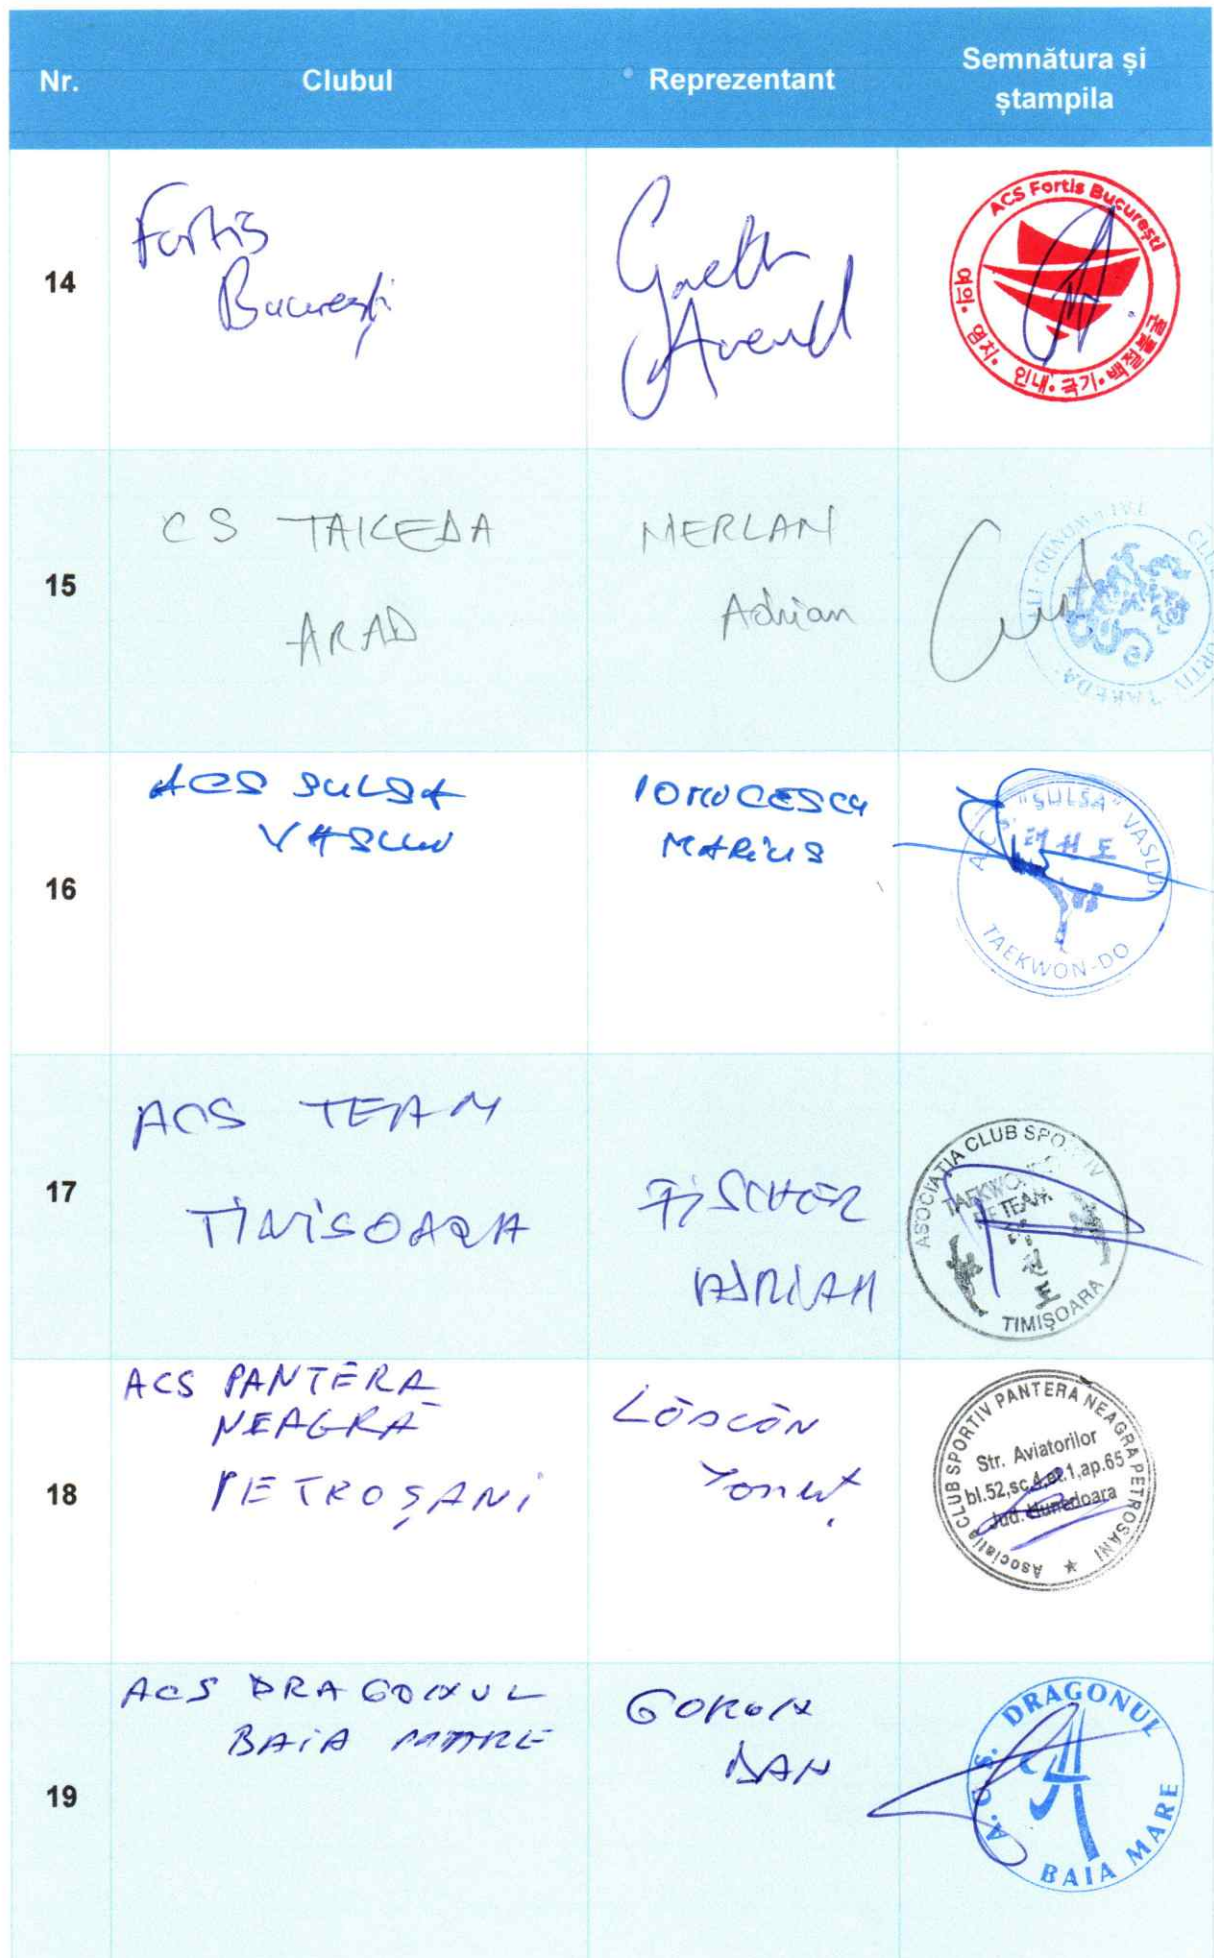 Nr.
Clubul
Reprezentant
Semnătura și
ștampila
14
Fortis
București
ACS Fortis București
예의・염치・인내・극기・백절불굴
15
CS TAKEDA
ARAD
MERLAN
Adrian
TAKEDA
16
ACS SULSA
VASLUI
MARIUS
A.C.S. "SULSA" VASLUI
태권도
TAEKWON-DO
17
ACS TEAM
TIMISOARA
FISCHER
ADRIAN
ASOCIAȚIA CLUB SPORTIV
TEAM
태권도
TIMIȘOARA
18
ACS PANTERA
NEAGRĂ
PETROȘANI
Ionuț
Asociatia CLUB SPORTIV PANTERA NEAGRA PETROSANI
Str. Aviatorilor
bl.52,sc.4,et.1,ap.65
Jud. Hunedoara
19
ACS DRAGONUL
BAIA MARE
GORON
DAN
A.C.S. DRAGONUL
BAIA MARE